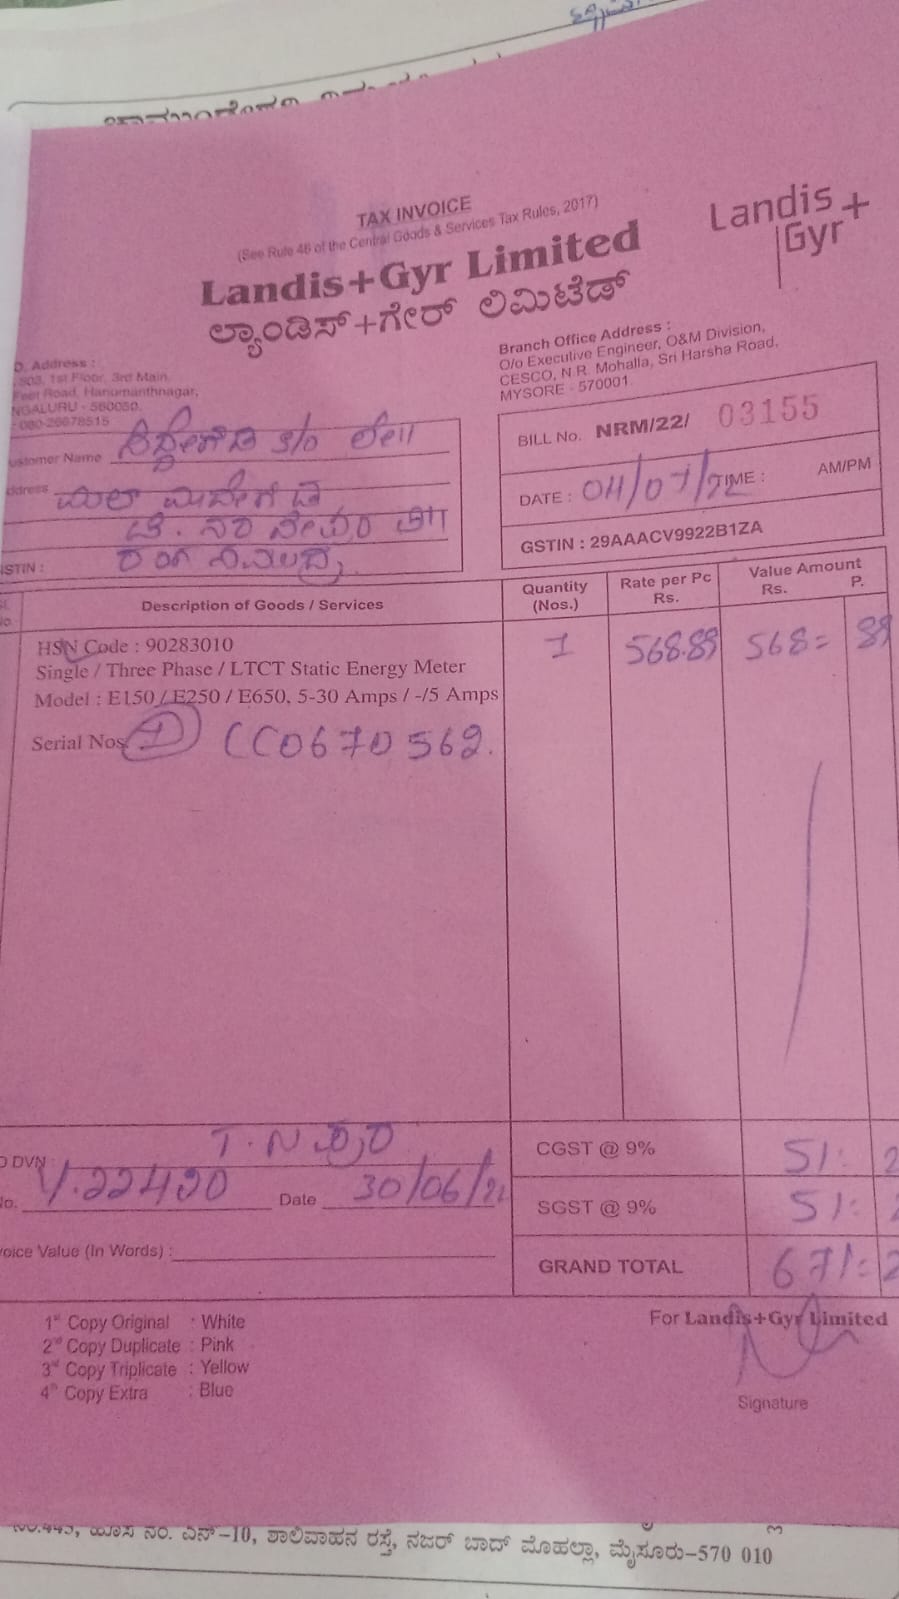 TAX INVOICE
(See Rule 46 of the Central Goods & Services Tax Rules, 2017)
Landis+Gyr Limited
ಲ್ಯಾಂಡಿಸ್+ಗೇರ್ ಲಿಮಿಟೆಡ್
Landis+
Gyr
D. Address :
503, 1st Floor, 3rd Main,
Feet Road, Hanumanthnagar,
NGALURU - 560050.
080-26678515
Branch Office Address :
O/o Executive Engineer, O&M Division,
CESCO, N.R. Mohalla, Sri Harsha Road,
MYSORE - 570001.
ustomer Name S/o
ddress
STIN :
BILL No. NRM/22/ 03155
DATE : 04/07/22 TIME : AM/PM
GSTIN : 29AAACV9922B1ZA
No. Description of Goods / Services Quantity (Nos.) Rate per Pc Rs. Value Amount Rs. P.
HSN Code : 90283010 1 568.89 568= 89
Single / Three Phase / LTCT Static Energy Meter
Model : E150 / E250 / E650, 5-30 Amps / -/5 Amps
Serial Nos. 1 CC0670562.
DVN : T.N
No. 22420 Date 30/06/22
voice Value (In Words) :
CGST @ 9% 51: 2
SGST @ 9% 51: 2
GRAND TOTAL 671: 2
1st Copy Original : White
2nd Copy Duplicate : Pink
3rd Copy Triplicate : Yellow
4th Copy Extra : Blue
For Landis+Gyr Limited
Signature
ನಂ.443, ಹೊಸ ನಂ. ಎನ್-10, ಶಾಲಿವಾಹನ ರಸ್ತೆ, ನಜರ್ ಬಾದ್ ಮೊಹಲ್ಲಾ, ಮೈಸೂರು-570 010